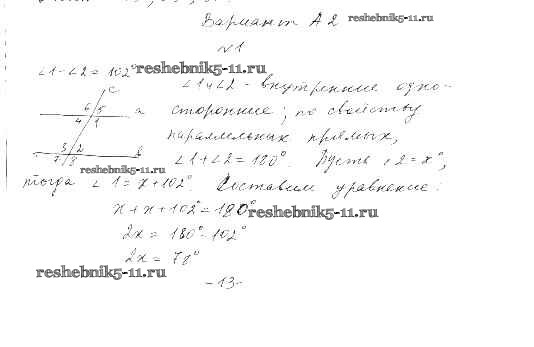 Вариант А 2 reshebnik5-11.ru
№1
∠1-∠2=102° reshebnik5-11.ru
∠1 и ∠2 - внутренние одно-
c
6 5 a сторонние; по свойству
4 1
параллельных прямых,
3 2 b
7 8
reshebnik5-11.ru
∠1+∠2=180°. Пусть ∠2=x°,
тогда ∠1=x+102°. Составим уравнение:
x+x+102°=180° reshebnik5-11.ru
2x=180°-102°
2x=78°
reshebnik5-11.ru
-13-